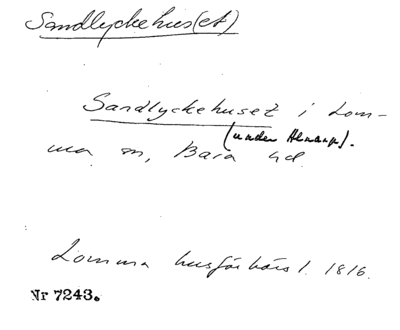 Sandlyckehus(et)
Sandlyckehuset i Lom-
(under Alnarp).
ma sn, Bara hd
Lomma husförhörsl. 1816.
Nr 7243.